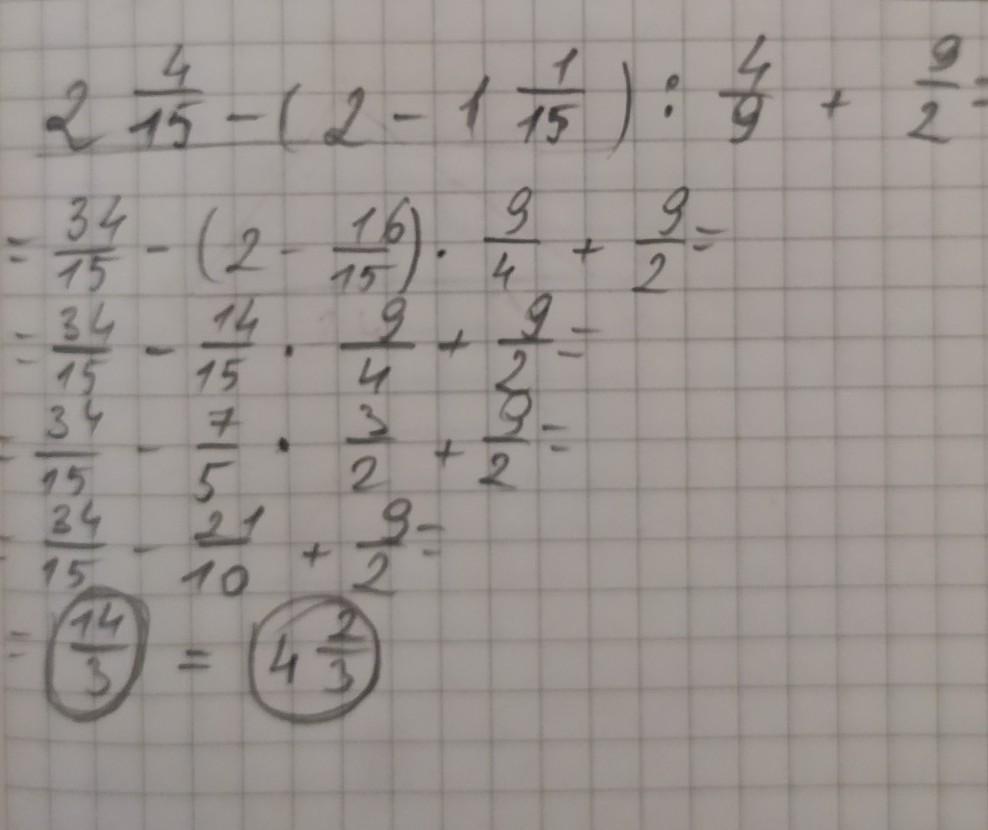 2 4/15 - ( 2 - 1 1/15 ) : 4/9 + 9/2 =
= 34/15 - ( 2 - 16/15 ) · 9/4 + 9/2 =
= 34/15 - 14/15 · 9/4 + 9/2 =
= 34/15 - 7/5 · 3/2 + 9/2 =
= 34/15 - 21/10 + 9/2 =
= 14/3 = 4 2/3